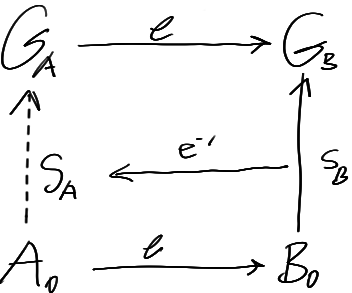 G_A e G_B
S_A e⁻¹ S_B
A_0 e B_0